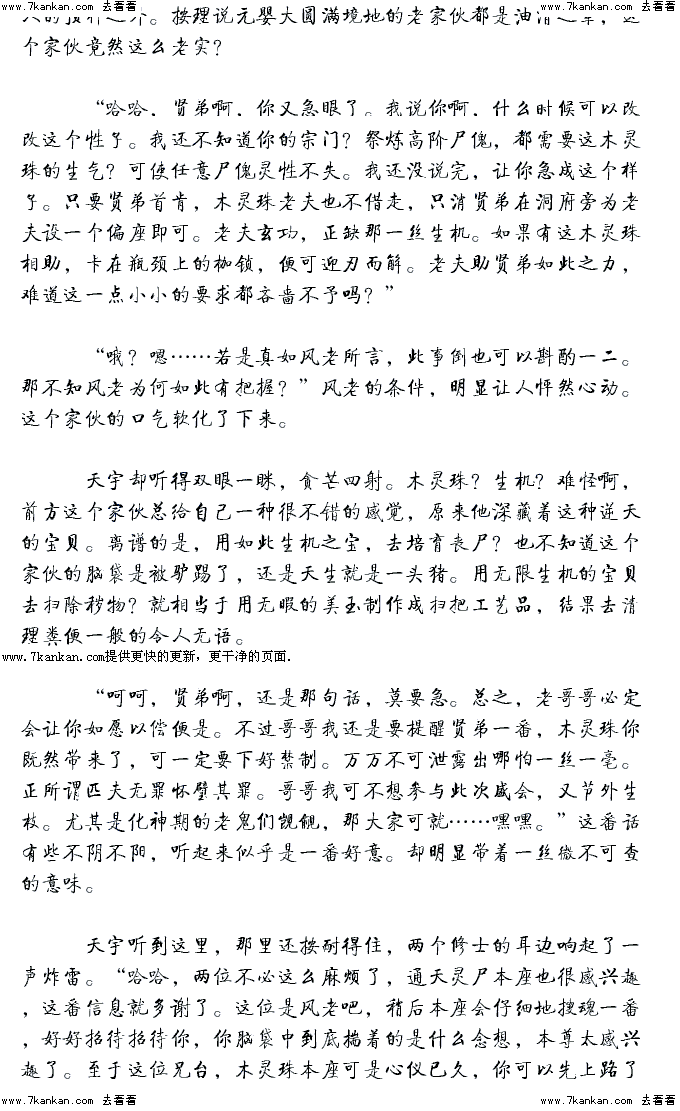 www.7kankan.com 去看看 www.7kankan.com 去看看
按理说元婴大圆满境地的老家伙都是油滑之辈，这
个家伙竟然这么老实？
“哈哈，贤弟啊，你又急眼了。我说你啊，什么时候可以改
改这个性子。我还不知道你的宗门？祭炼高阶尸傀，都需要这木灵
珠的生气？可使任意尸傀灵性不失。我还没说完，让你急成这个样
子。只要贤弟首肯，木灵珠老夫也不借走，只消贤弟在洞府旁为老
夫设一个偏座即可。老夫玄功，正缺那一丝生机。如果有这木灵珠
相助，卡在瓶颈上的枷锁，便可迎刃而解。老夫助贤弟如此之力，
难道这一点小小的要求都吝啬不予吗？”
“哦？嗯……若是真如风老所言，此事倒也可以斟酌一二。
那不知风老为何如此有把握？”风老的条件，明显让人怦然心动。
这个家伙的口气软化了下来。
天宇却听得双眼一眯，贪芒四射。木灵珠？生机？难怪啊，
前方这个家伙总给自己一种很不错的感觉，原来他深藏着这种逆天
的宝贝。离谱的是，用如此生机之宝，去培育丧尸？也不知道这个
家伙的脑袋是被驴踢了，还是天生就是一头猪。用无限生机的宝贝
去扫除秽物？就相当于用无暇的美玉制作成扫把工艺品，结果去清
理粪便一般的令人无语。
www.7kankan.com提供更快的更新，更干净的页面.
“呵呵，贤弟啊，还是那句话，莫要急。总之，老哥哥必定
会让你如愿以偿便是。不过哥哥我还是要提醒贤弟一番，木灵珠你
既然带来了，可一定要下好禁制。万万不可泄露出哪怕一丝一毫。
正所谓匹夫无罪怀璧其罪。哥哥我可不想参与此次盛会，又节外生
枝。尤其是化神期的老鬼们觊觎，那大家可就……嘿嘿。”这番话
有些不阴不阳，听起来似乎是一番好意。却明显带着一丝微不可查
的意味。
天宇听到这里，那里还按耐得住，两个修士的耳边响起了一
声炸雷。“哈哈，两位不必这么麻烦了，通天灵尸本座也很感兴趣
，这番信息就多谢了。这位是风老吧，稍后本座会仔细地搜魂一番
，好好招待招待你，你脑袋中到底揣着的是什么念想，本尊太感兴
趣了。至于这位兄台，木灵珠本座可是心仪已久，你可以先上路了
www.7kankan.com 去看看 www.7kankan.com 去看看